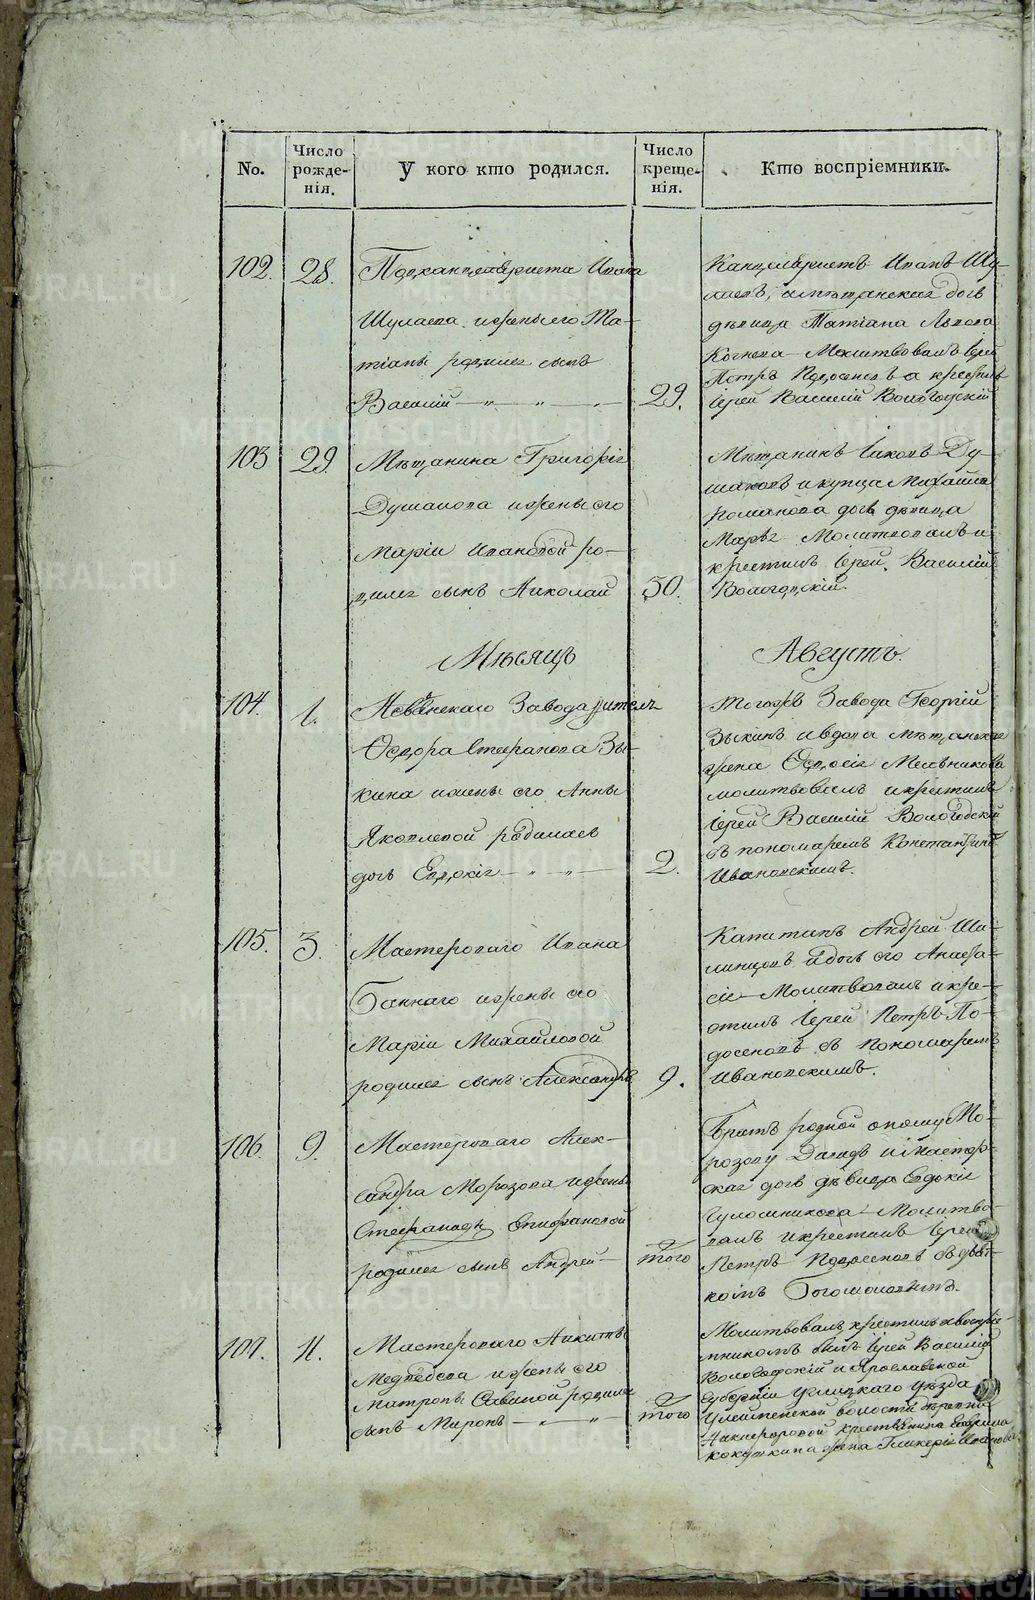 No.
Число рожде-
нія.
У кого кто родился.
Число креще-
нія.
Кто воспріемники.
102.
28.
Подканцеляриста Ивана
Шулаева и жены его Та-
тіаны родился сынъ
Василій
29.
Канцеляристъ Иванъ Шу-
лаевъ, и мѣщанская дочь
дѣвица Татіана Львова
Молитвовалъ Іерей
Петръ а крестилъ
Іерей Василій Вологодскій
103
29.
Мѣщанина Григорія
Душанова и жены его
Маріи Ивановой ро-
дился сынъ Николай
30.
Мѣщанинъ Іаковъ Ду-
шановъ и купца Михайла
Романова дочь дѣвица
Марья Молитвовалъ и
крестилъ Іерей Василій
Вологодскій.
Мѣсяцъ
Августъ.
104.
1.
Невьянскаго Завода житель
Ѳедора Стефанова Зы-
кина и жены его Анны
Яковлевой родилась
дочь Евдокія
2.
Тогожъ Завода Георгій
Зыкинъ и вдова мѣщанская
жена Ѳедосія Мельникова
молитвовалъ и крестилъ
Іерей Василій Вологодскій
съ пономаремъ Константиномъ
Ивановскимъ.
105.
3.
Мастероваго Ивана
Баннаго и жены его
Маріи Михайловой
родился сынъ Александръ
9.
Капитанъ Андрей Ши-
и дочь его Анаста-
сія Молитвовалъ и кре-
стилъ Іерей Петръ По-
досеновъ съ пономаремъ
Ивановскимъ.
106.
9.
Мастероваго Алек-
сандра Морозова и жены
Стефаниды Епифановой
родился сынъ Андрей
того
Братъ родной оному Мо-
розову Давидъ и мастер-
ская дочь дѣвица Евдокія
Молитво-
валъ и крестилъ Іерей
Петръ Подосеновъ съ дья-
комъ
107.
11.
Мастероваго Никиты
Медведева и жены его
Савиной родился
сынъ Миронъ
того
Молитвовалъ крестилъ и воспріе-
мникомъ былъ Іерей Василій
Вологодскій и Ярославской
Губерніи Углицкаго уѣзда
волости деревни
крестьянина Гаврила
жена Гликерія Иванова
METRIKI.GASO-URAL.RU